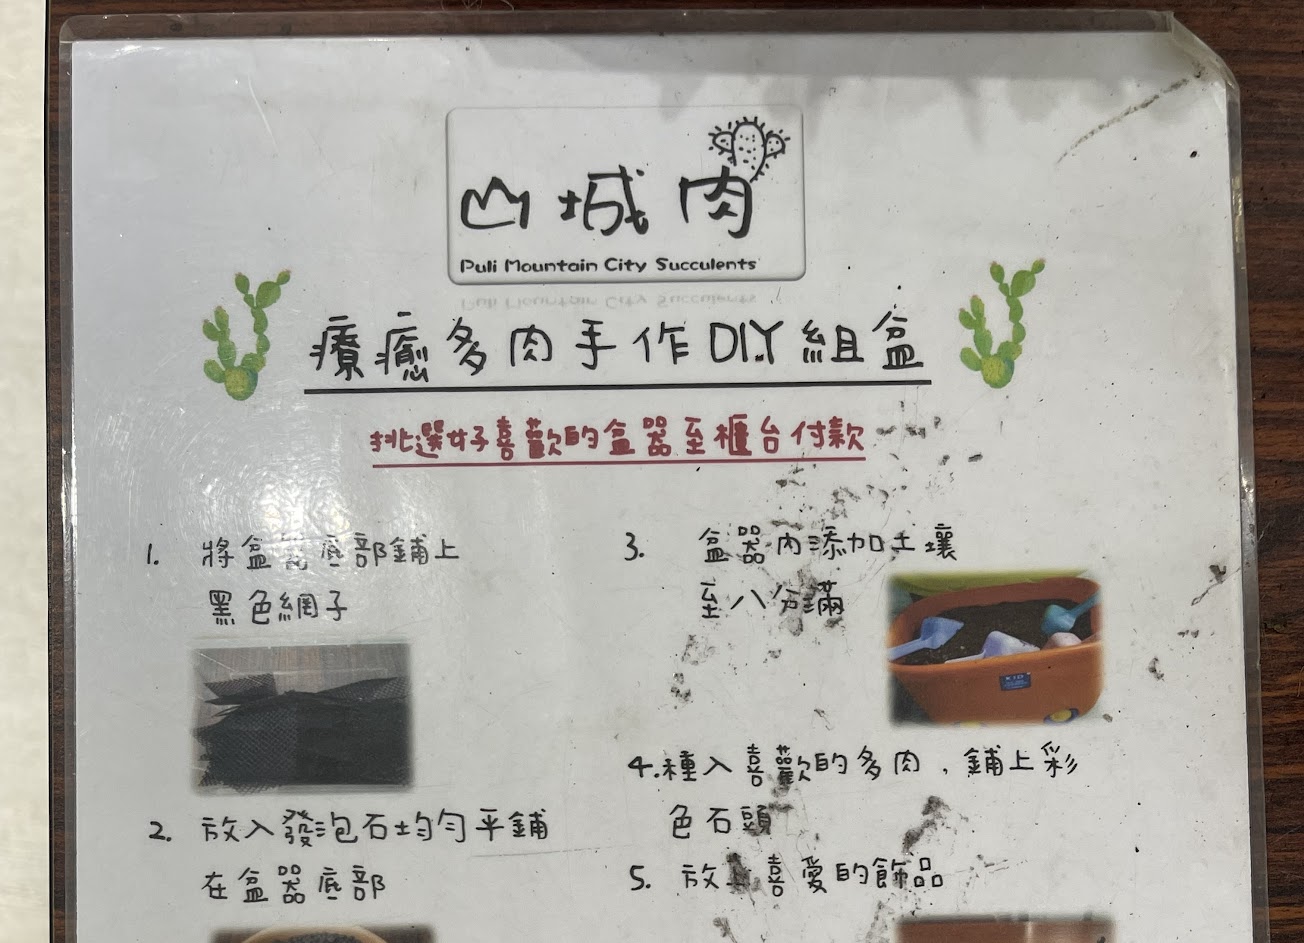 山城肉
Puli Mountain City Succulents
療癒多肉手作DIY組盒
挑選好喜歡的盒器至櫃台付款
1. 將盒器底部鋪上
黑色網子
2. 放入發泡石均勻平鋪
在盒器底部
3. 盒器內添加土壤
至八分滿
KID
4.種入喜歡的多肉,鋪上彩
色石頭
5. 放入喜愛的飾品